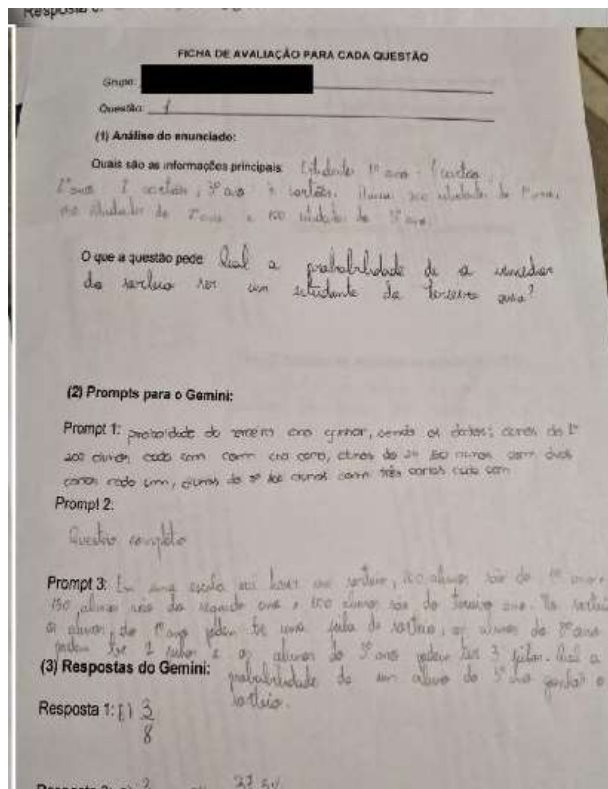 Resposta
FICHA DE AVALIAÇÃO PARA CADA QUESTÃO
Grupo:
Questão: 1
(1) Análise do enunciado:
Quais são as informações principais: Estudante 1º ano - 1 cartão,
2º ano 2 cartões, 3º ano 3 cartões. 200 estudantes do 1º ano,
estudantes do 2º ano e 100 estudantes do 3º ano.
O que a questão pede: Qual a probabilidade de o vencedor
do sorteio ser um estudante da terceira
(2) Prompts para o Gemini:
Prompt 1: do terceiro ano ganhar, sendo os dados: do 1º
200 alunos cada com com carta, do 2º 150 alunos com duas
cartas cada um, alunos do 3º 100 alunos com três cartas cada um
Prompt 2:
Questão completa
Prompt 3: Em uma escola vai haver um sorteio, alunos são do 1º ano,
150 alunos são do segundo ano e 100 alunos são do terceiro ano. No sorteio
os alunos do 1º ano podem ter uma do sorteio, os alunos do 2º ano
podem ter 2 e os alunos do 3º ano podem ter 3 Qual a
(3) Respostas do Gemini:
probabilidade de um aluno do 3º ano ganhar o
sorteio.
Resposta 1: 3
8